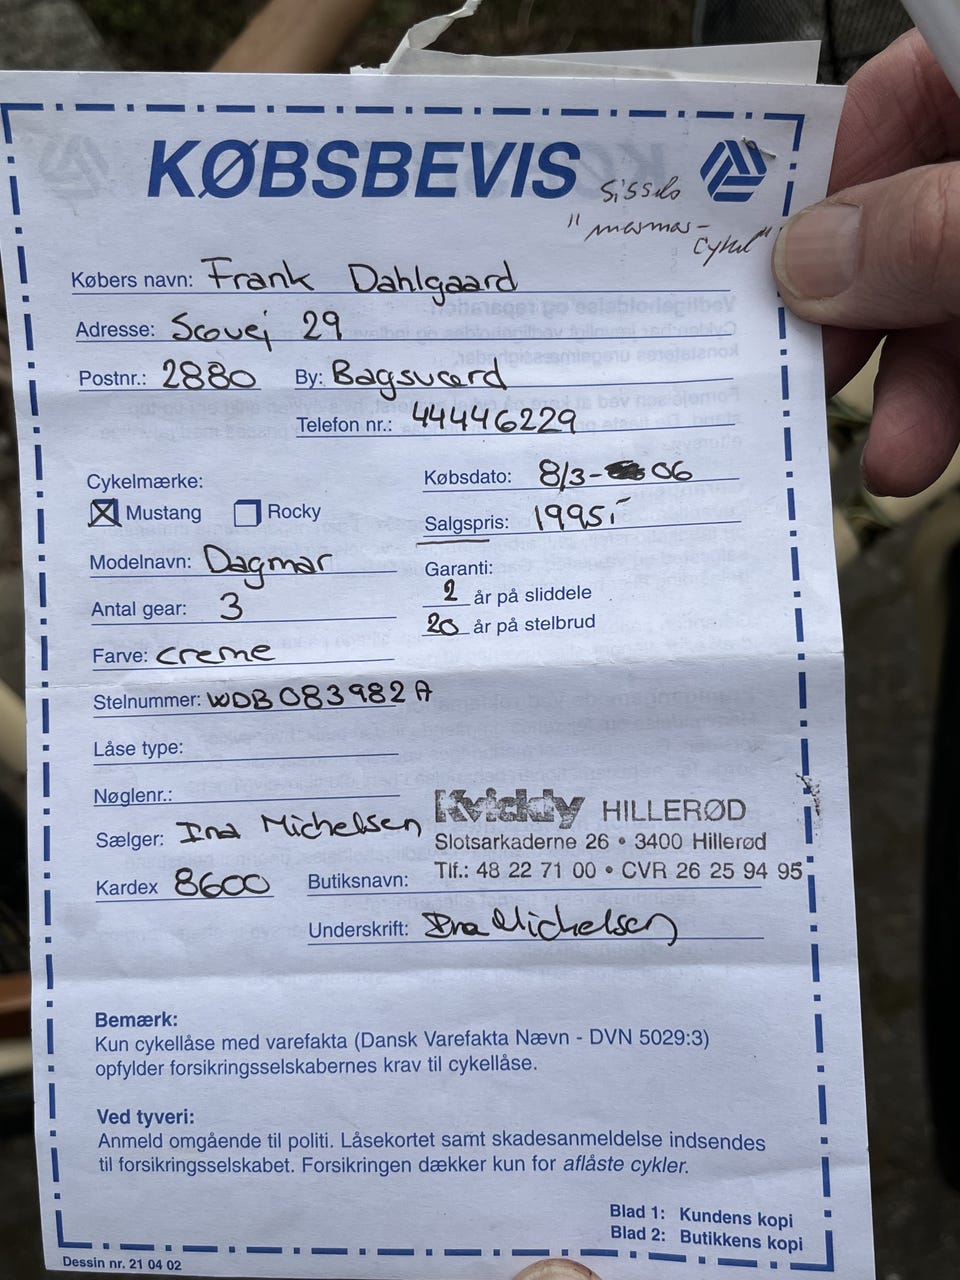 KØBSBEVIS
Sissels
"mormor-
cykel"
Købers navn: Frank Dahlgaard
Adresse: Scovej 29
Postnr.: 2880 By: Bagsværd
Telefon nr.: 44446229
Cykelmærke:
Mustang Rocky
Købsdato: 8/3- 06
Salgspris: 1995,-
Modelnavn: Dagmar
Garanti:
Antal gear: 3
2 år på sliddele
20 år på stelbrud
Farve: creme
Stelnummer: WDB083982A
Låse type:
Nøglenr.:
Sælger: Ina Michelsen
Kardex 8600
Kvickly HILLERØD
Slotsarkaderne 26 • 3400 Hillerød
Butiksnavn: Tlf.: 48 22 71 00 • CVR 26 25 94 95
Underskrift: Ina Michelsen
Bemærk:
Kun cykellåse med varefakta (Dansk Varefakta Nævn - DVN 5029:3)
opfylder forsikringsselskabernes krav til cykellåse.
Ved tyveri:
Anmeld omgående til politi. Låsekortet samt skadesanmeldelse indsendes
til forsikringsselskabet. Forsikringen dækker kun for aflåste cykler.
Blad 1: Kundens kopi
Blad 2: Butikkens kopi
Dessin nr. 21 04 02